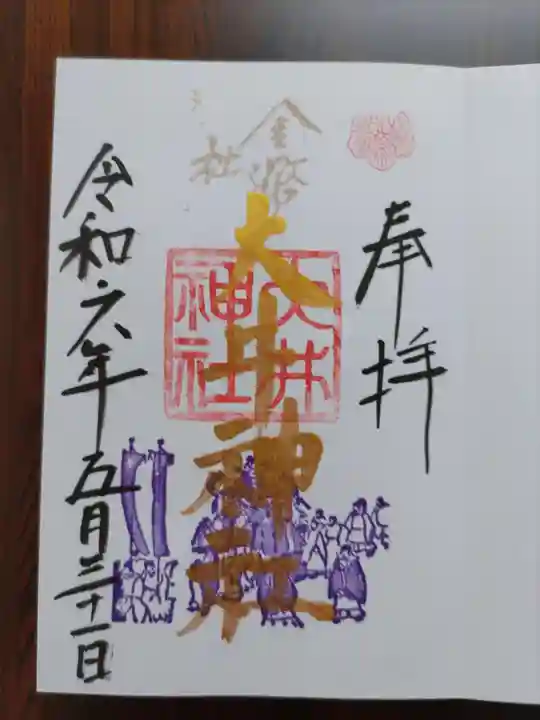 奉拝
大井神社
大井
神社
令和六年五月三十一日